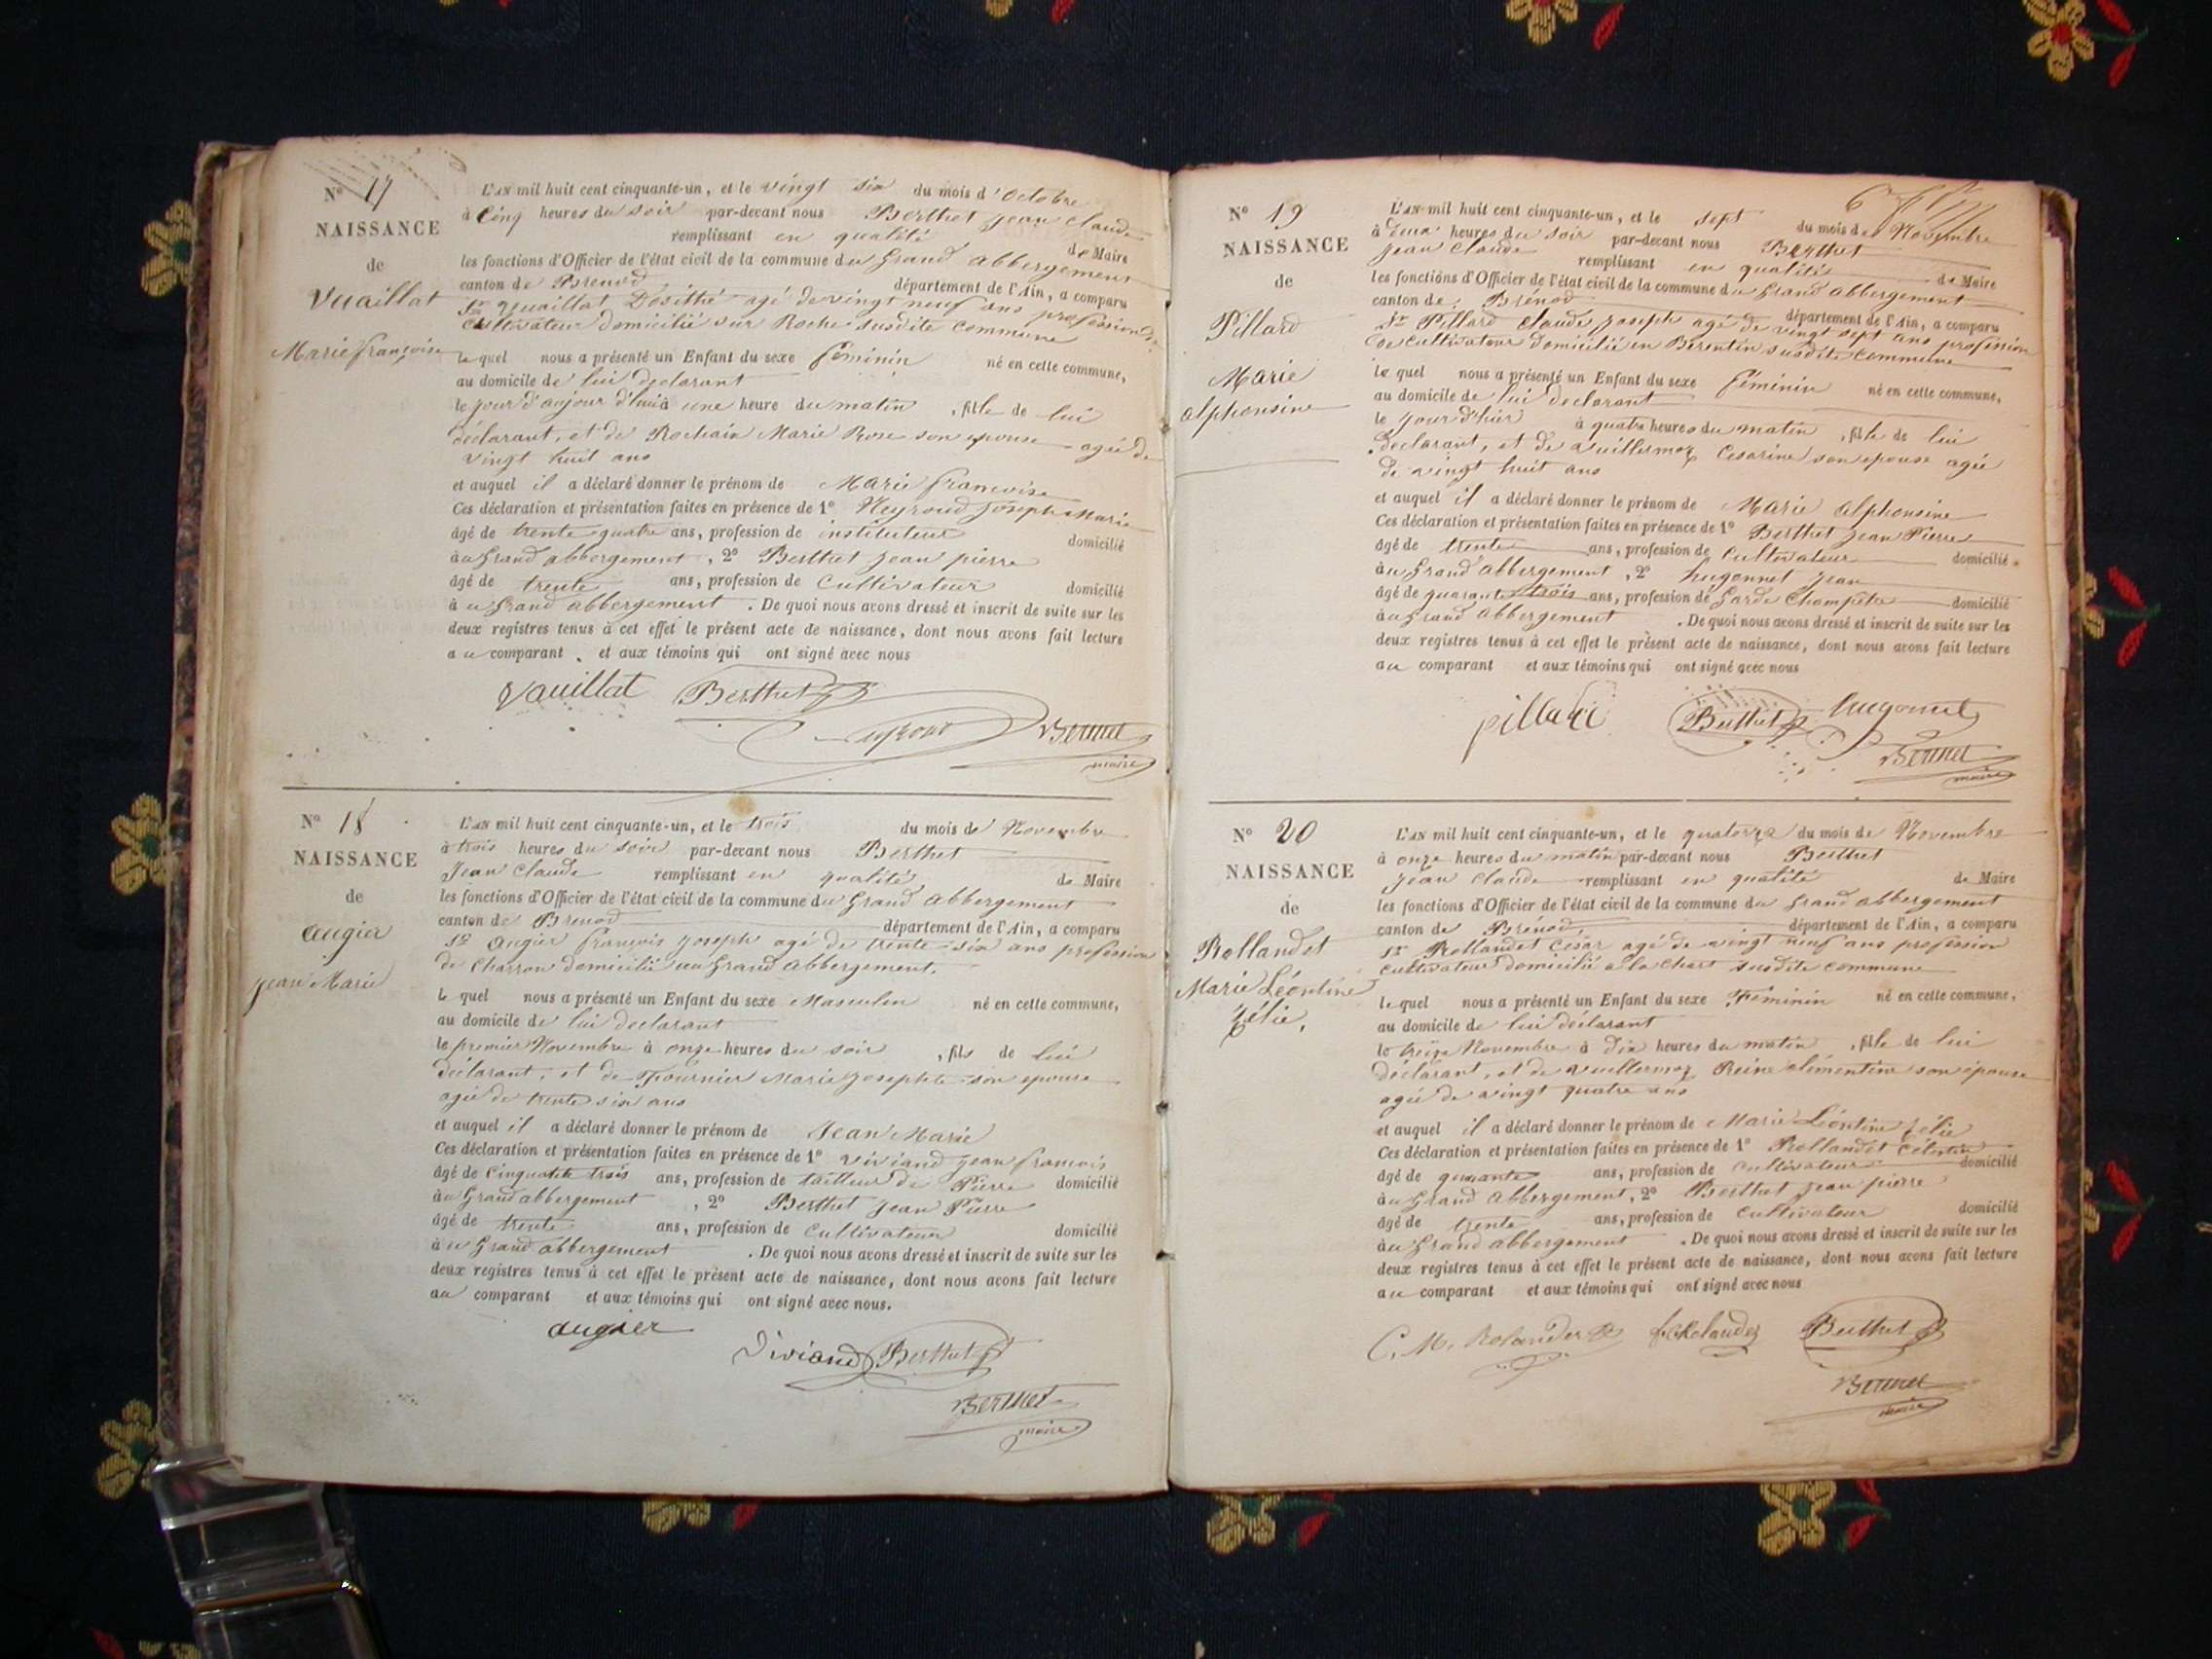 Nº 17
NAISSANCE
de
Vuaillat
Marie françoise
L'AN mil huit cent cinquante-un, et le vingt six du mois d'Octobre
à Cinq heures du soir par-devant nous Berthet jean claude
remplissant en qualité de Maire
les fonctions d'Officier de l'état civil de la commune du Grand abbergement
canton de Brenod département de l'Ain, a comparu
Sr Vuaillat Dosithé agé de vingt neuf ans profession de
cultivateur domicilié sur Roche susdite commune
lequel nous a présenté un Enfant du sexe féminin né en cette commune,
au domicile de lui declarant
le jour d'aujour d'hui à une heure du matin, fille de lui
déclarant, et de Rochaix Marie Rose son epouse agée de
vingt huit ans
et auquel il a déclaré donner le prénom de Marie françoise
Ces déclaration et présentation faites en présence de 1º Neyroud Joseph Marie
âgé de trente quatre ans, profession de instituteur domicilié
au Grand abbergement, 2º Berthet jean pierre
âgé de trente ans, profession de cultivateur domicilié
à au Grand abbergement. De quoi nous avons dressé et inscrit de suite sur les
deux registres tenus à cet effet le présent acte de naissance, dont nous avons fait lecture
au comparant. et aux témoins qui ont signé avec nous
Vauillat Berthet
Neyroud Berthet
maire
Nº 18
NAISSANCE
de
augier
jean Marie
L'AN mil huit cent cinquante-un, et le trois du mois de Novembre
à trois heures du soir par-devant nous Berthet
Jean Claude remplissant en qualité de Maire
les fonctions d'Officier de l'état civil de la commune du Grand abbergement
canton de Brenod département de l'Ain, a comparu
Sr augier françois joseph agé de trente six ans profession
de charron domicilié au Grand abbergement.
le quel nous a présenté un Enfant du sexe Masculin né en cette commune,
au domicile de lui declarant
le premier Novembre à onze heures du soir, fils de lui
déclarant, et de Fournier Marie josephte son epouse
agée de trente six ans
et auquel il a déclaré donner le prénom de Jean Marie
Ces déclaration et présentation faites en présence de 1º viviand jean francois
âgé de Cinquante trois ans, profession de tailleur de Pierre domicilié
au Grand abbergement, 2º Berthet jean Pierre
âgé de trente ans, profession de cultivateur domicilié
à au Grand abbergement. De quoi nous avons dressé et inscrit de suite sur les
deux registres tenus à cet effet le présent acte de naissance, dont nous avons fait lecture
au comparant et aux témoins qui ont signé avec nous.
augier
Viviand Berthet
Berthet
maire
Nº 19
NAISSANCE
de
Pillard
Marie
alphonsine
L'AN mil huit cent cinquante-un, et le sept du mois de Novembre
à deux heures du soir par-devant nous Berthet
jean claude remplissant en qualité de Maire
les fonctions d'Officier de l'état civil de la commune du Grand abbergement
canton de Brénod département de l'Ain, a comparu
Sr Pillard claude joseph agé de vingt sept ans profession
de cultivateur domicilié en Berentin susdite commune
le quel nous a présenté un Enfant du sexe féminin né en cette commune,
au domicile de lui declarant
le jour d'hier à quatre heures du matin, fille de lui
declarant, et de vuillermoz Cesarine son epouse agée
de vingt huit ans
et auquel il a déclaré donner le prénom de Marie alphonsine
Ces déclaration et présentation faites en présence de 1º Berthet jean Pierre
âgé de trente ans, profession de cultivateur domicilié
au Grand abbergement, 2º hugonnet jean
âgé de quarante trois ans, profession de Garde Champetre domicilié
au Grand abbergement. De quoi nous avons dressé et inscrit de suite sur les
deux registres tenus à cet effet le présent acte de naissance, dont nous avons fait lecture
au comparant et aux témoins qui ont signé avec nous
pillard Berthet hugonnet
Berthet
maire
Nº 20
NAISSANCE
de
Rollandet
Marie Léontine
Zélie,
L'AN mil huit cent cinquante-un, et le quatorze du mois de Novembre
à onze heures du matin par-devant nous Berthet
jean claude remplissant en qualité de Maire
les fonctions d'Officier de l'état civil de la commune du Grand abbergement
canton de Brénod, département de l'Ain, a comparu
Sr Rollandet César agé de vingt neuf ans profession
cultivateur domicilié a la Chart susdite commune
lequel nous a présenté un Enfant du sexe Féminin né en cette commune,
au domicile de lui déclarant
le treize Novembre à dix heures du matin, fille de lui
déclarant, et de vuillermoz Reine clémentine son épouse
agée de vingt quatre ans
et auquel il a déclaré donner le prénom de Marie Léontine Zélie
Ces déclaration et présentation faites en présence de 1º Rollandet Célestin
âgé de quarante ans, profession de cultivateur domicilié
au Grand abbergement, 2º Berthet jean pierre
âgé de trente ans, profession de cultivateur domicilié
au Grand abbergement. De quoi nous avons dressé et inscrit de suite sur les
deux registres tenus à cet effet le présent acte de naissance, dont nous avons fait lecture
au comparant et aux témoins qui ont signé avec nous
C. M. Rolandet Berthet
Berthet
maire